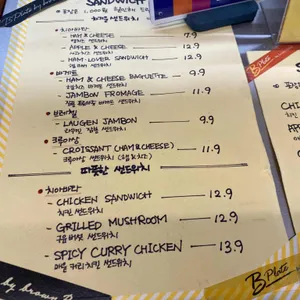 SANDWICH
차가운 샌드위치
• 치아바타
- HAM & CHEESE 7.9
햄치즈 샌드위치
- APPLE & CHEESE 12.9
사과치즈 샌드위치
- HAM-LOVER SANDWICH 12.9
• 바게트
- HAM & CHEESE BAGUETTE 9.9
햄치즈 바게트 샌드위치
- JAMBON FROMAGE 11.9
• 브레첼
- LAUGEN JAMBON 9.9
라우겐 잠봉 샌드위치
• 크루아상
- CROISSANT (HAM & CHEESE) 11.9
크루아상 샌드위치 (햄&치즈)
따뜻한 샌드위치
• 치아바타
- CHICKEN SANDWICH 12.9
치킨 샌드위치
- GRILLED MUSHROOM 12.9
구운버섯 샌드위치
- SPICY CURRY CHICKEN 13.9
매콤 커리치킨 샌드위치
by brown
B Plate
B Plate